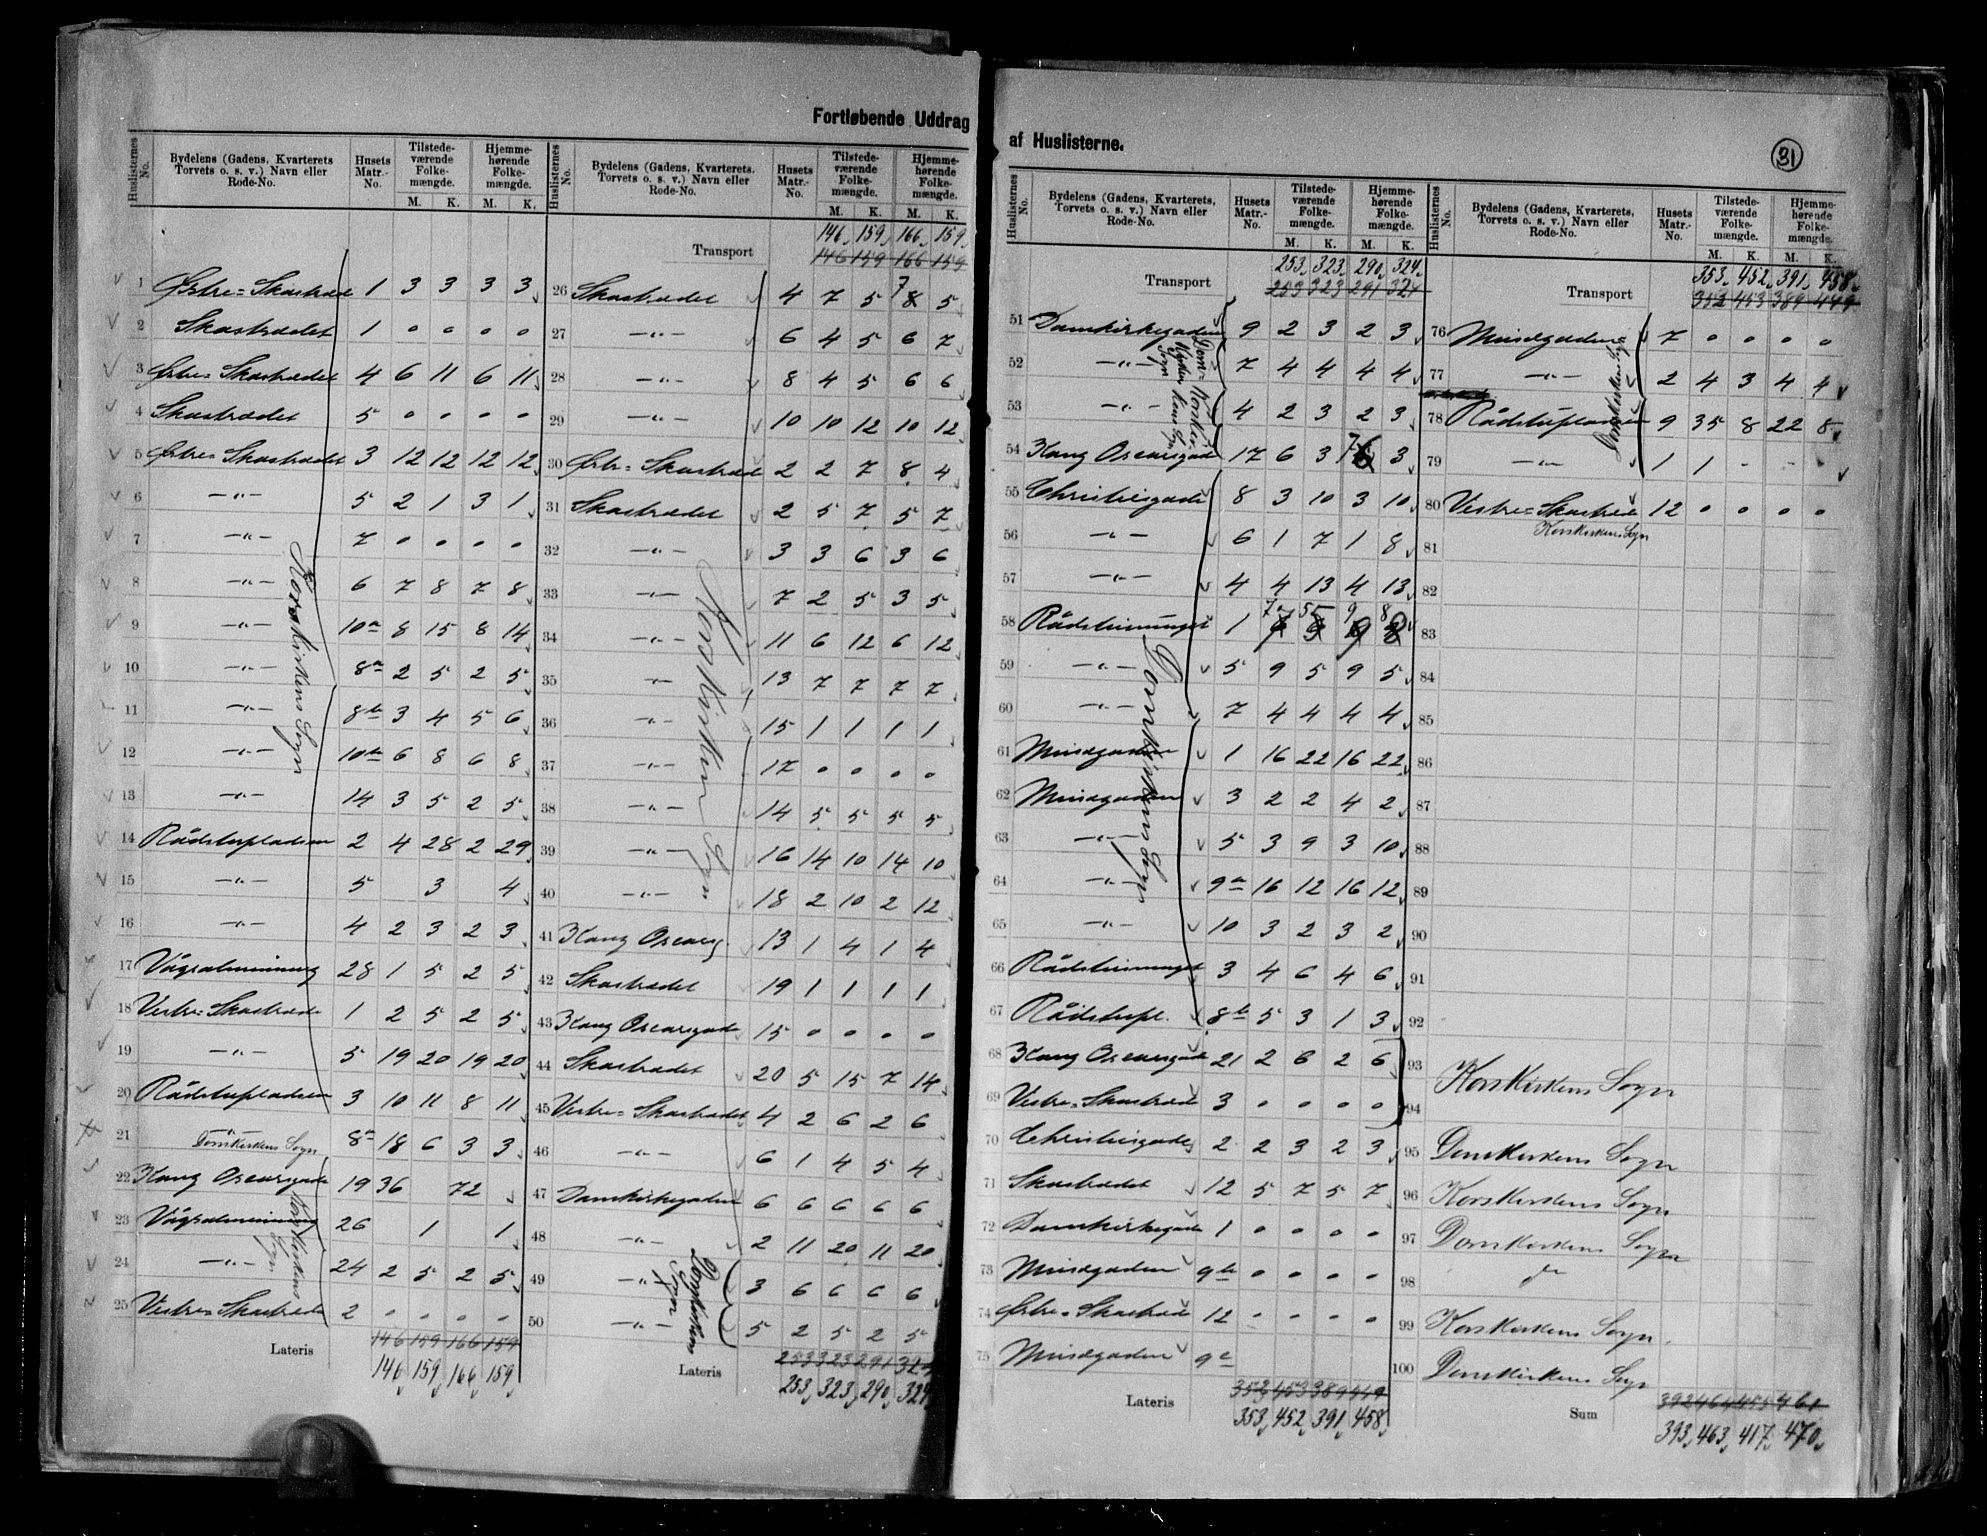 Fortløbende Uddrag
af Huslisterne.
31
Huslisternes No. Bydelens (Gadens, Kvarterets Torvets o. s. v.) Navn eller Rode-No. Husets Matr.-No. Tilstedeværende Folkemængde. M. K. Hjemmehørende Folkemængde. M. K.
1 Østre=Skostræde 1 3 3 3 3
2 Skostrædet 1 0 0 0 0
3 Østre=Skostrædet 4 6 11 6 11
4 Skostrædet 5 0 0 0 0
5 Østre=Skostrædet 3 12 12 12 12
6 —"— 5 2 1 3 1
7 —"— 7 0 0 0 0
8 —"— 6 7 8 7 8
9 —"— 10a 8 15 8 14
10 —"— 8a 2 5 2 5
11 —"— 8b 3 4 5 6
12 —"— 10b 6 8 6 8
13 —"— 14 3 5 2 5
14 Rådstupladsen 2 4 28 2 29
15 —"— 5 3 4
16 —"— 4 2 3 2 3
17 Vågsalmenning 28 1 5 2 5
18 Vestre=Skostræde 1 2 5 2 5
19 —"— 5 19 20 19 20
20 Rådstupladsen 3 10 11 8 11
21 —"— Domkirkens Sogn 8a 18 6 3 3
22 Kong Oscarsgade 19 36 72
23 Vågsalmenning 26 1 1
24 —"— 24 2 5 2 5
25 Vestre=Skostræde 2 0 0 0 0
Korskirkens Sogn
Korskirkens Sogn
Lateris 146 159 166 159
146 159 166 159
Huslisternes No. Bydelens (Gadens, Kvarterets, Torvets o. s. v.) Navn eller Rode-No. Husets Matr.-No. Tilstedeværende Folkemængde. M. K. Hjemmehørende Folkemængde. M. K.
146 159 166 159
Transport 146 159 166 159
26 Skostrædet 4 7 5 7 8 5
27 —"— 6 4 5 6 7
28 —"— 8 4 5 6 6
29 —"— 10 10 12 10 12
30 Østr=Skostræde 2 2 7 8 4
31 Skostrædet 2 5 7 5 7
32 —"— 3 3 6 3 6
33 —"— 7 2 5 3 5
34 —"— 11 6 12 6 12
35 —"— 13 7 7 7 7
36 —"— 15 1 1 1 1
37 —"— 17 0 0 0 0
38 —"— 14 5 5 5 5
39 —"— 16 14 10 14 10
40 —"— 18 2 10 2 12
41 Kong Oscarsg. 13 1 4 1 4
42 Skostrædet 19 1 1 1 1
43 Kong Oscarsgade 15 0 0 0 0
44 Skostrædet 20 5 15 7 14
45 Vestre=Skostrædet 4 2 6 2 6
46 —"— 6 1 4 5 4
47 Domkirkegaden 6 6 6 6 6
48 —"— 2 11 20 11 20
49 —"— 3 6 6 6 6
50 —"— 5 2 5 2 5
Korskirkens Sogn
Domkirkens Sogn
Lateris 253 323 291 324
253 323 290 324
Huslisternes No. Bydelens (Gadens, Kvarterets, Torvets o. s. v.) Navn eller Rode-No. Husets Matr.-No. Tilstedeværende Folkemængde. M. K. Hjemmehørende Folkemængde. M. K.
253 323 290 324
Transport 253 323 291 324
51 Domkirkegaden 9 2 3 2 3
52 —"— 7 4 4 4 4
53 —"— 4 2 3 2 3
54 Kong Oscarsgade 17 6 3 7 3
55 Christiesgade 8 3 10 3 10
56 —"— 6 1 7 1 8
57 —"— 4 4 13 4 13
58 1 7 5 9 8
59 —"— 5 9 5 9 5
60 —"— 7 4 4 4 4
61 Mindgaden 1 16 22 16 22
62 Mindgaden 3 2 2 4 2
63 —"— 5 3 9 3 10
64 —"— 9a 16 12 16 12
65 —"— 10 3 2 3 2
66 3 4 6 4 6
67 Rådstupl. 8b 5 3 1 3
68 Kong Oscarsgade 21 2 6 2 6
69 Vestre=Skostræde 3 0 0 0 0
70 Christiesgade 2 2 3 2 3
71 Skostrædet 12 5 7 5 7
72 Domkirkegade 1 0 0 0 0
73 Mindgaden 9b 0 0 0 0
74 Østre=Skostræde 12 0 0 0 0
75 Mindgaden 9c
Domkirkens Sogn
Lateris 353 453 389 449
353 452 391 458
Huslisternes No. Bydelens (Gadens, Kvarterets, Torvets o. s. v.) Navn eller Rode-No. Husets Matr.-No. Tilstedeværende Folkemængde. M. K. Hjemmehørende Folkemængde. M. K.
353 452 391 458
Transport 353 453 389 449
76 Mindgaden 7 0 0 0 0
77 —"— 2 4 3 4 4
78 Rådstupladsen 9 35 8 22 8
79 —"— 1 1 - - -
80 Vestre=Skostræde 12 0 0 0 0
Korskirkens Sogn
81
82
83
84
85
86
87
88
89
90
91
92
93 Korskirkens Sogn
94
95 Domkirkens Sogn
96 Korskirkens Sogn
97 Domkirkens Sogn
98 do
99 Korskirkens Sogn.
100 Domkirkens Sogn
Sum
393 463 417 470